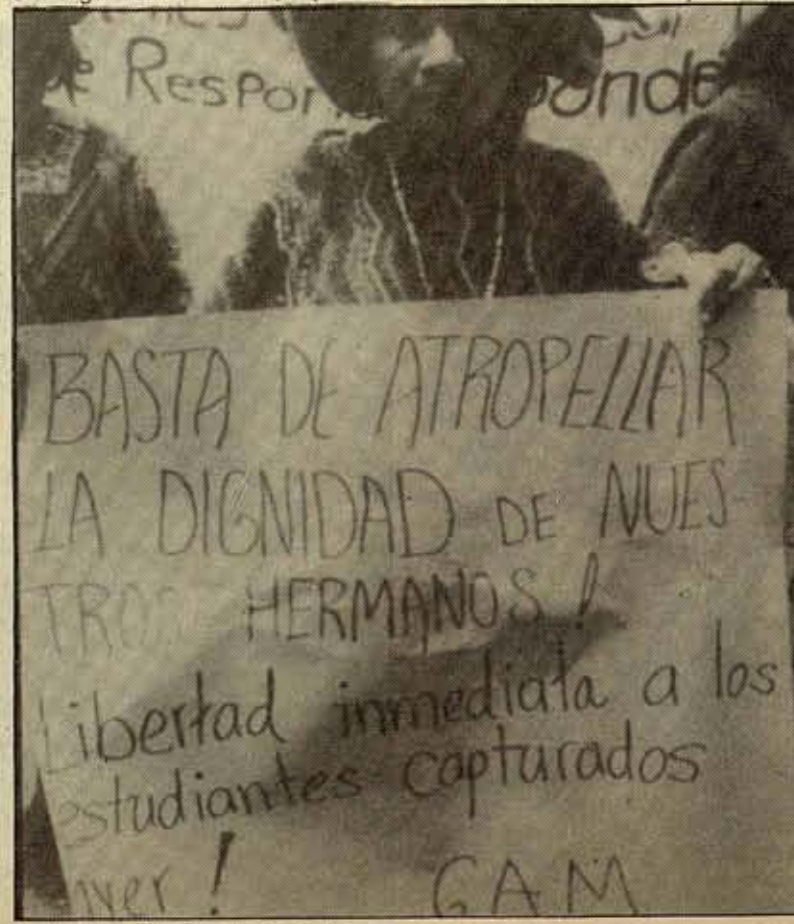 Respon onde
BASTA DE ATROPELLAR
LA DIGNIDAD DE NUES-
TROS HERMANOS!
Libertad inmediata a los
estudiantes capturados
ayer! G.A.M.